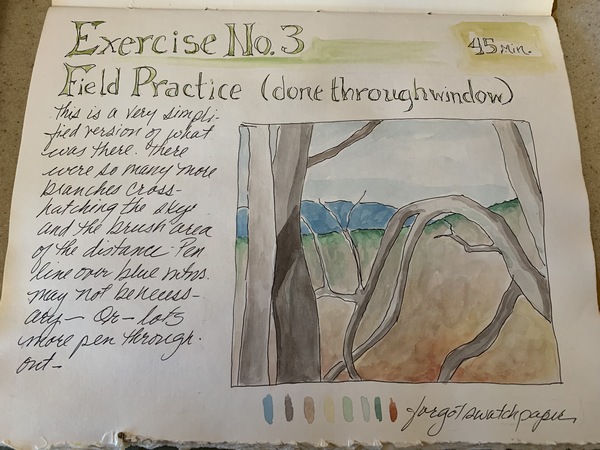 Exercise No. 3
45 min.
Field Practice (done through window)
this is a very simpli-
fied version of what
was there. There
were so many more
branches cross-
hatching the sky
and the brush area
of the distance. Pen
line over blue mtns.
may not be necess-
ary — Or — lots
more pen through-
out —
forgot swatch paper